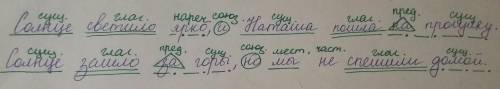 сущ. глаг. нареч. союз. сущ. глаг. пред. сущ.
Солнце светило ярко, и Наташа пошла на прогулку.
сущ. глаг. пред. сущ. союз. мест. част. глаг. сущ.
Солнце зашло за горы, но мы не спешили домой.